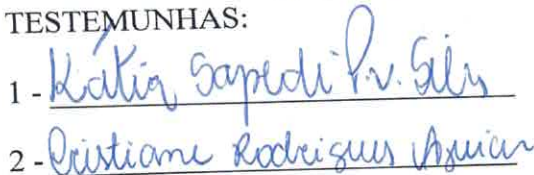 TESTEMUNHAS:
1 - Kátia Sapedi P.V. Silva
2 - Cristiane Rodrigues Aguiar